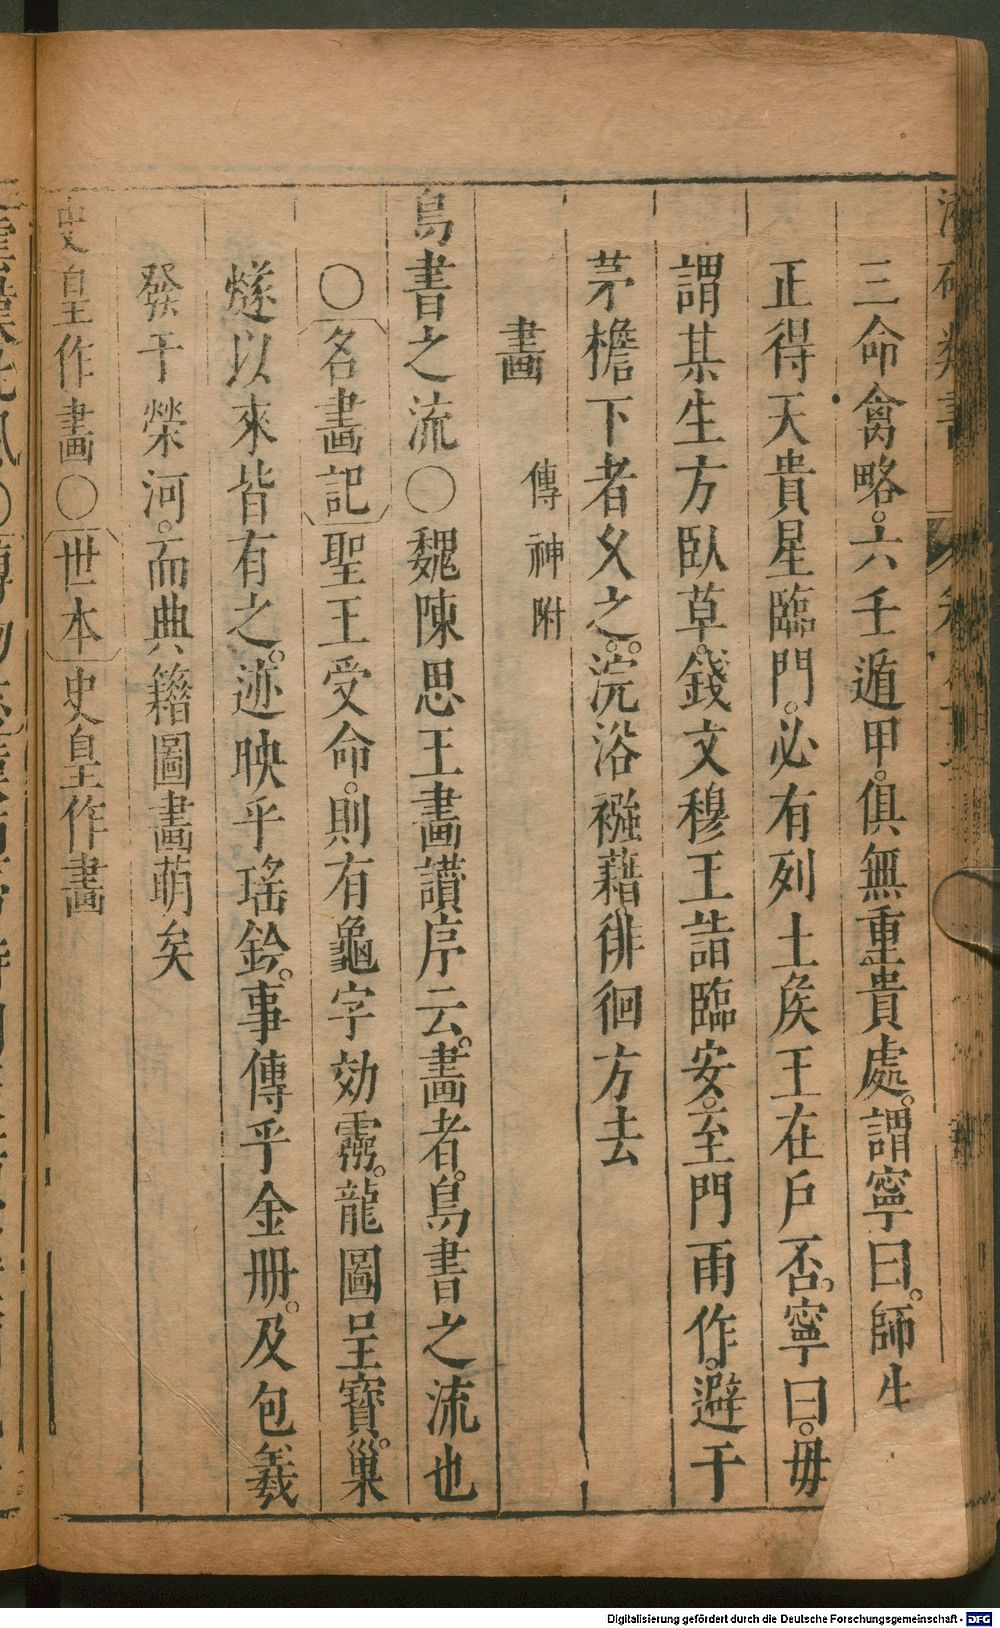 三命禽略。六壬遁甲。俱無重貴處。謂寧曰。師生
正得天貴星臨門。必有列土侯王在戶否。寧曰。毋
謂其生方臥草。錢文穆王詣臨安。至門雨作。避于
茅檐下者久之。浣浴襁藉。徘徊方去
畫
傳神附
鳥書之流〇魏陳思王畫讚序云。畫者。鳥書之流也
〇名畫記聖王受命。則有龜字効靈。龍圖呈寶。巢
燧以來皆有之。迹映乎瑤鈐。事傳乎金册。及包羲
發于榮河。而典籍圖畫萌矣
史皇作畫〇世本史皇作畫
Digitalisierung gefördert durch die Deutsche Forschungsgemeinschaft - DFG